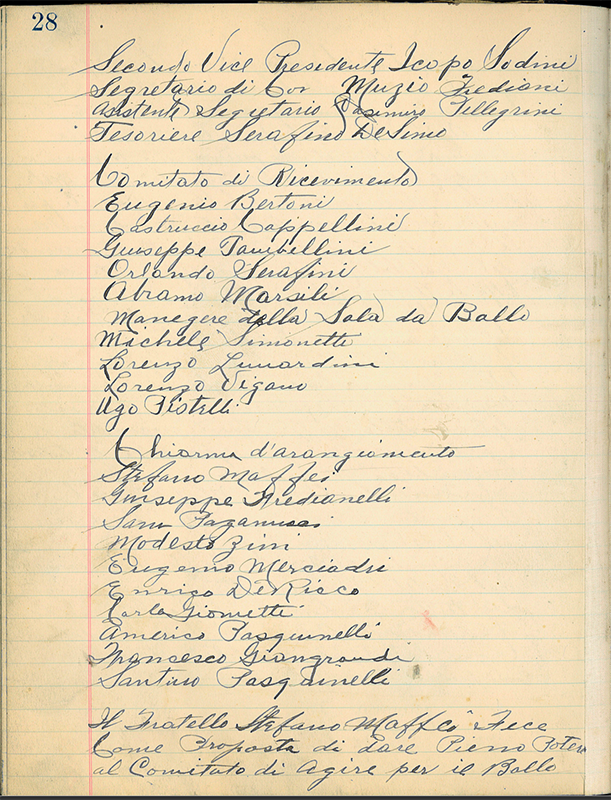 28
Secondo Vice Presidente Icopo Sodini
Segretario di Cor Muzio Frediani
Asistente Segretario Casimiro Pellegrini
Tesoriere Serafino DeSimo
Comitato di Ricevimento
Eugenio Bertoni
Castruccio Cappellini
Giuseppe Tambellini
Orlando Serafini
Abramo Marsili
Manegere della Sala da Ballo
Michele Simonetti
Lorenzo Lunardini
Lorenzo Vigano
Ugo Pistelli
Chiorman d'arangiomento
Stefano Maffei
Guiseppe Fredianelli
Sam Paganucci
Modesto Zini
Eugenio Merciadri
Enrico DeRicco
Carlo Giometti
Americo Pasquinelli
Francesco Giangrandi
Santino Pasquinelli
Il Fratello Stefano Maffei Fece
Come Proposta di dare Pieno Poten
al Comitato di Agire per il Ballo